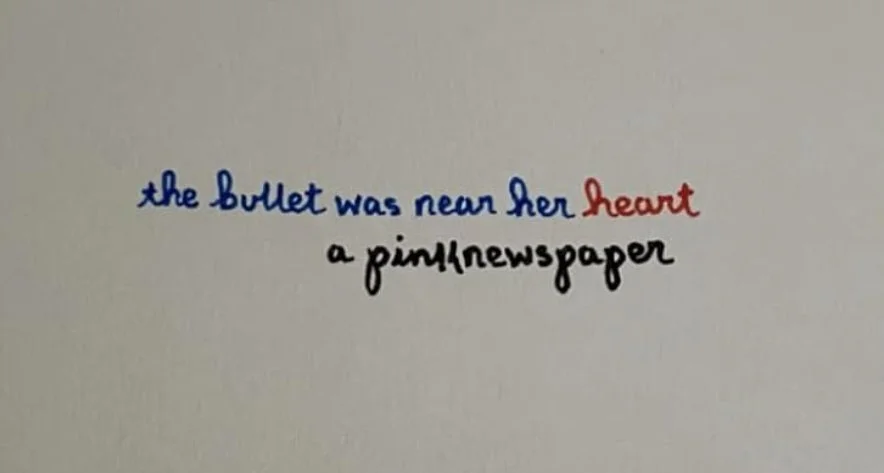 the bullet was near her heart
a pink newspaper